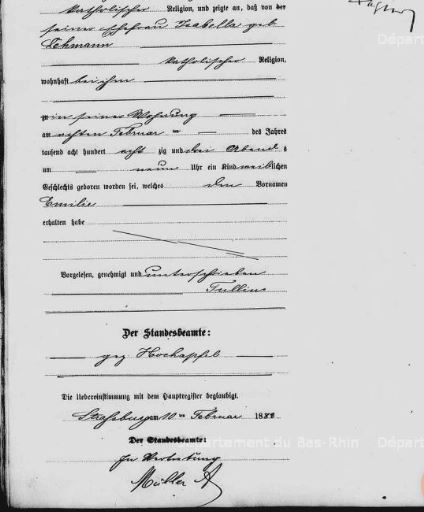 katholischer Religion, und zeigte an, daß von der
seiner Ehefrau Isabella geb
Lehmann
katholischer Religion,
wohnhaft bei ihm
zu in seiner Wohnung
am achten Februar des Jahres
tausend acht hundert acht zig und drei Abend s
um neun Uhr ein Kind weiblichen
Geschlechts geboren worden sei, welches den Vornamen
Emilie
erhalten habe
Vorgelesen, genehmigt und unterschrieben
Tullin
Der Standesbeamte:
gez Hochapfel
Die Uebereinstimmung mit dem Hauptregister beglaubigt.
Straßburg am 10 ten Februar 188
Der Standesbeamte:
In Vertretung
Müller A
Départ
artement du Bas-Rhin
Départ